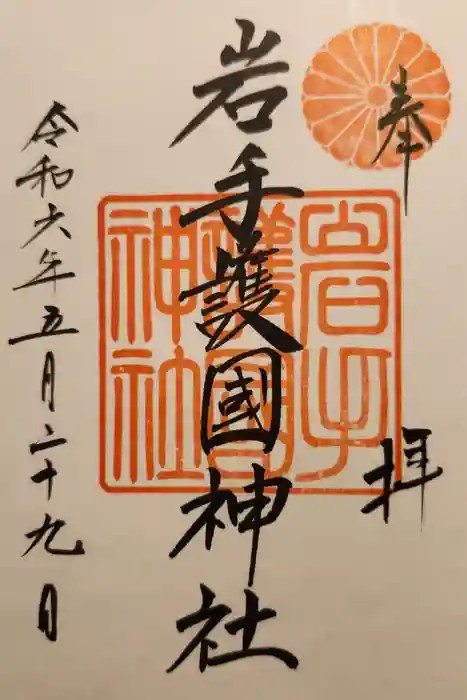 奉拝
岩手護國神社
岩手護國神社
令和六年五月二十九日